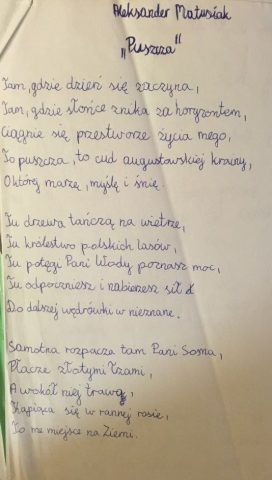 Aleksander Matusiak
„Puszcza"
Tam, gdzie dzień się zaczyna,
Tam, gdzie słońce znika za horyzontem,
Ciągnie się przestworze życia mego,
To puszcza, to cud augustowskiej krainy,
O której marzę, myślę i śnię.
Tu drzewa tańczą na wietrze,
Tu królestwo polskich lasów,
Tu potęgi Pani Wody poznasz moc,
Tu odpoczniesz i nabierzesz sił
Do dalszej wędrówki w nieznane.
Samotna rozpacza tam Pani Sosna,
Płacze złotymi łzami,
A wokół niej trawa,
Kąpiąca się w rannej rosie,
To me miejsce na Ziemi.